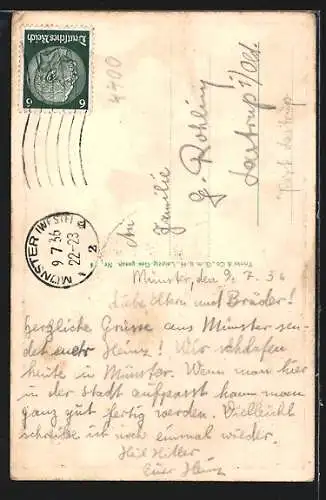 Deutsches Reich
6 6
4400
MÜNSTER (WESTF) 2
9.7.36
22-23
An
Familie
G. Rohling
Lastrup i/Old.
Trinks & Co., G.m.b.H., Leipzig. Ges. gesch. Nr.
Münster, den 9.7.36
Liebe Eltern und Brüder!
herzliche Grüsse aus Münster sen-
det euch Heinz! Wir schlafen
heute in Münster. Wenn man hier
in der Stadt aufpasst kann man
ganz gut fertig werden. Vielleicht
schreibe ich noch einmal wieder.
Heil Hitler
Euer Heinz